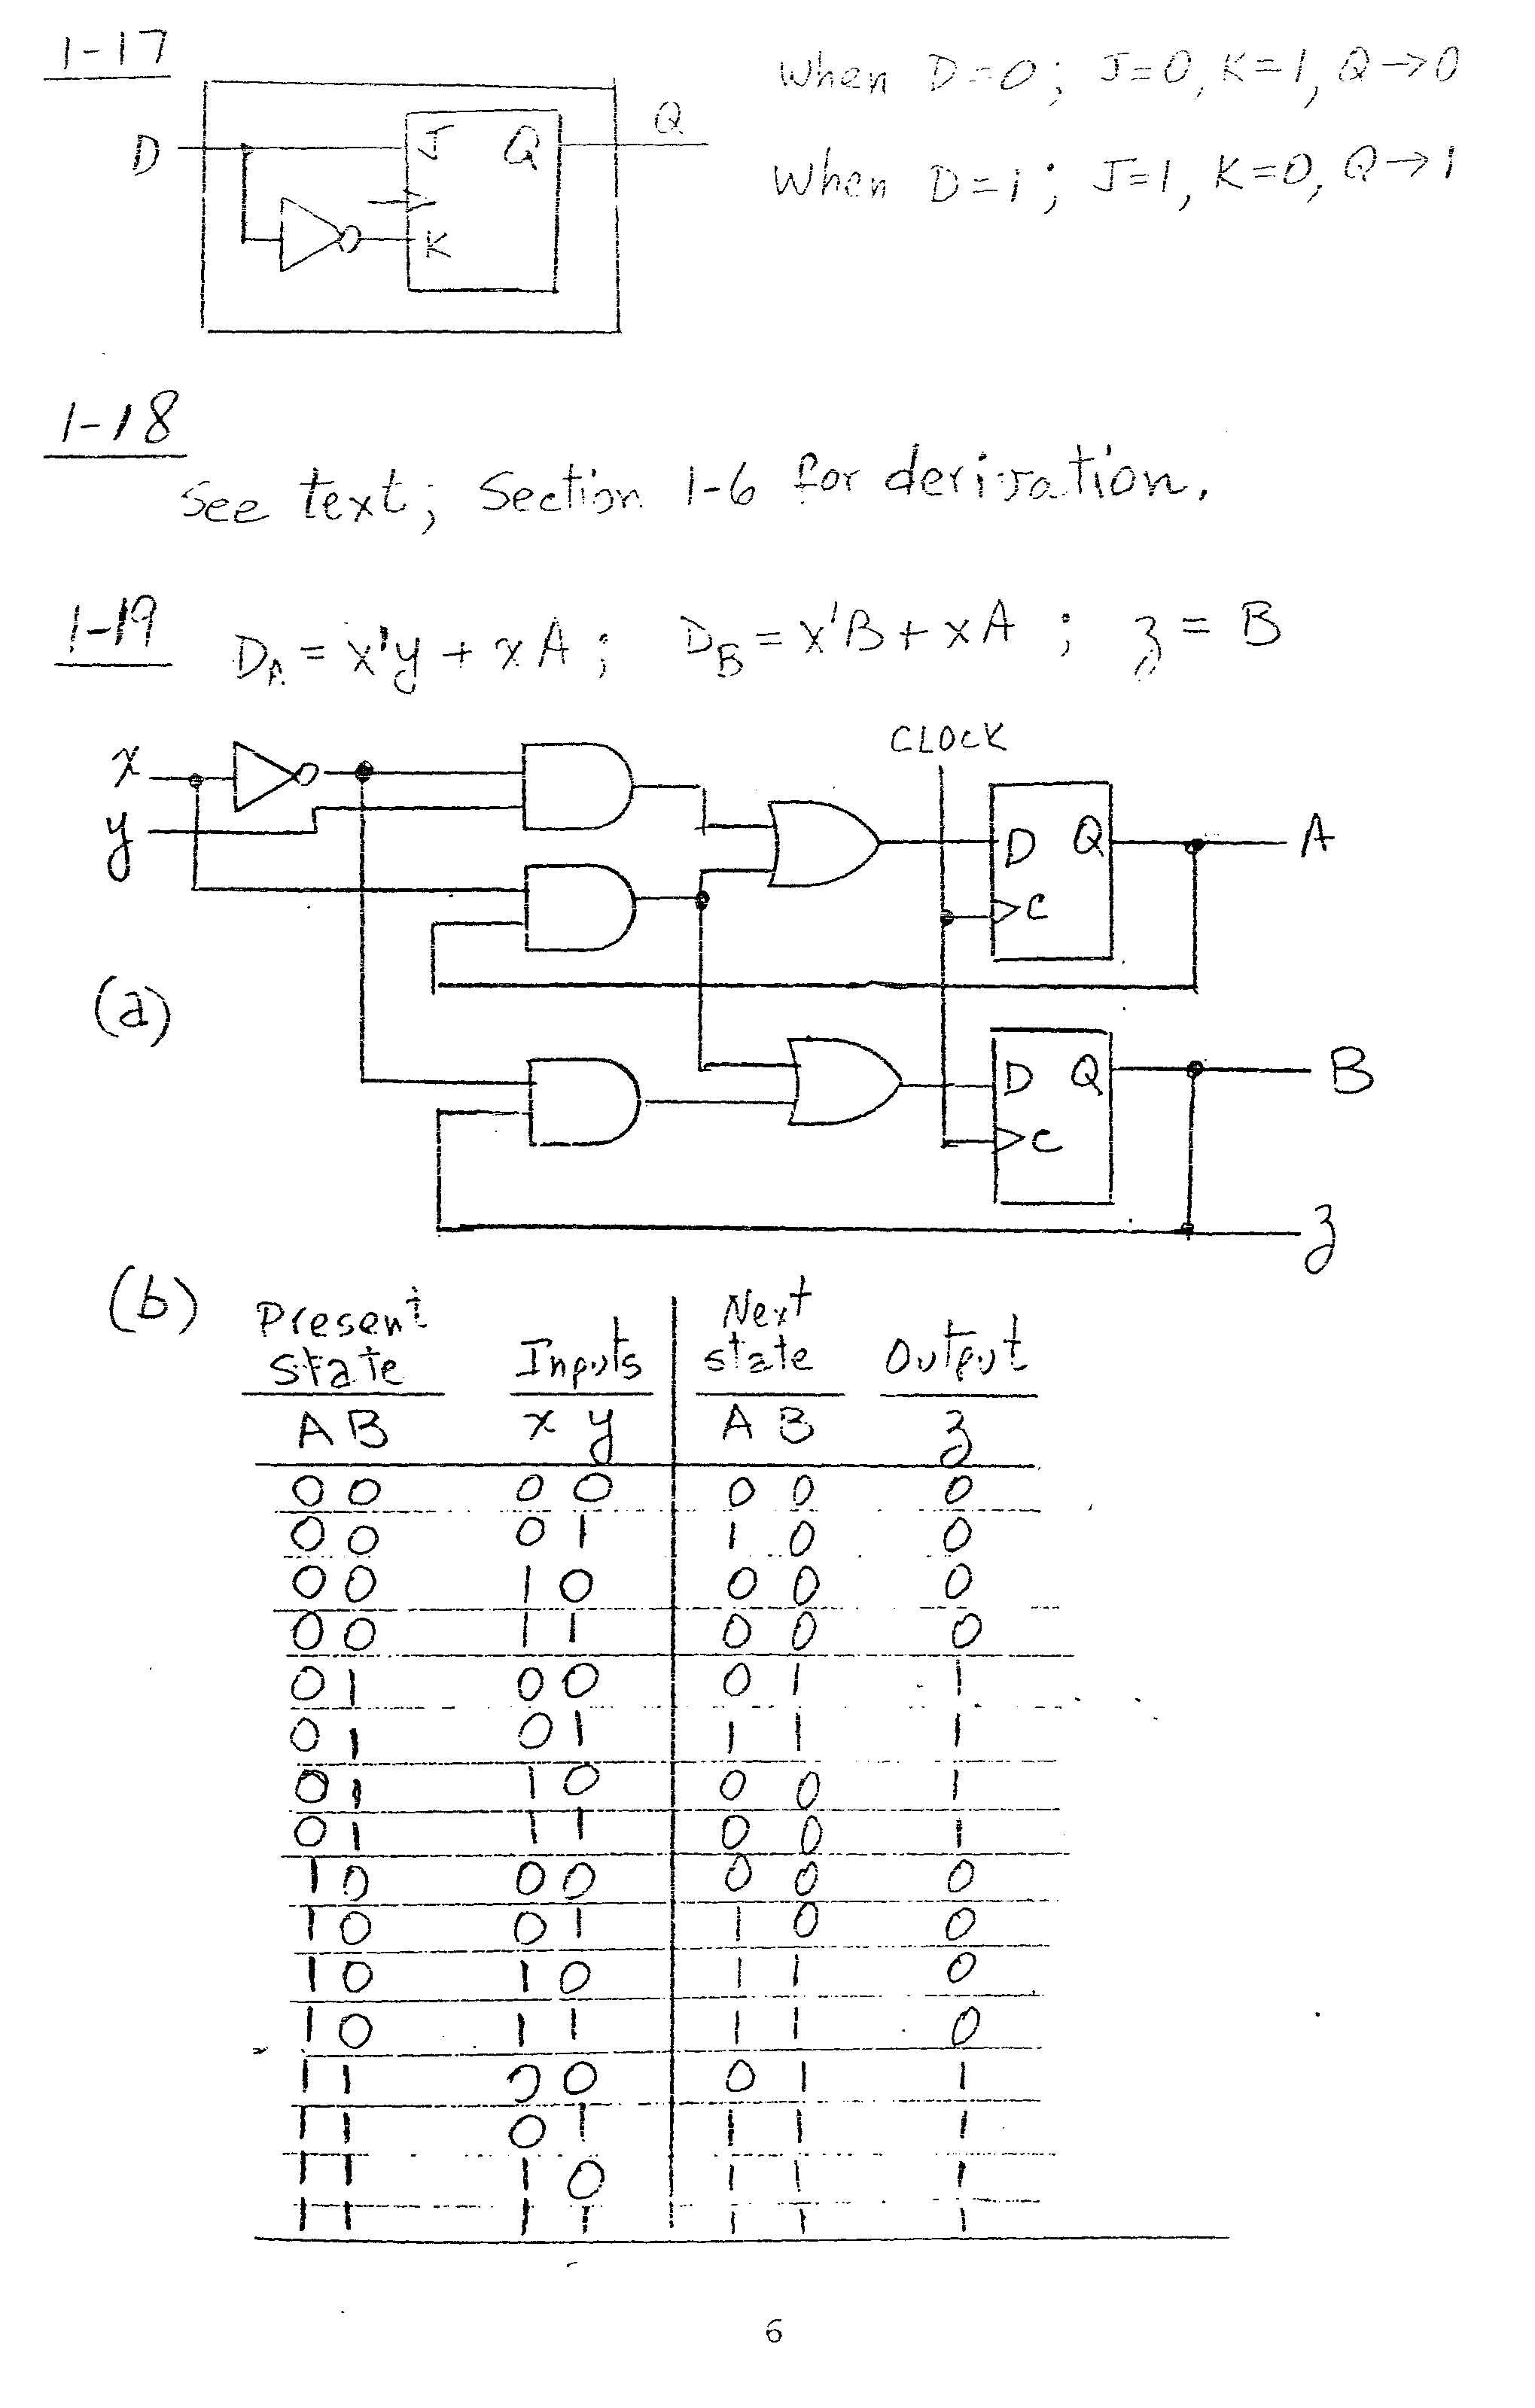 1-17
When D=0; J=0, K=1, Q→0
D J Q Q
K
When D=1; J=1, K=0, Q→1
1-18
See text; Section 1-6 for derivation.
1-19 D_A = x'y + xA; D_B = x'B + xA ; z = B
CLOCK
x
y
D Q A
C
(a)
D Q B
C
z
(b) Present Next
state Inputs state Output
A B x y A B z
0 0 0 0 0 0 0
0 0 0 1 1 0 0
0 0 1 0 0 0 0
0 0 1 1 0 0 0
0 1 0 0 0 1 1
0 1 0 1 1 1 1
0 1 1 0 0 0 1
0 1 1 1 0 0 1
1 0 0 0 0 0 0
1 0 0 1 1 0 0
1 0 1 0 1 1 0
1 0 1 1 1 1 0
1 1 0 0 0 1 1
1 1 0 1 1 1 1
1 1 1 0 1 1 1
1 1 1 1 1 1 1
6